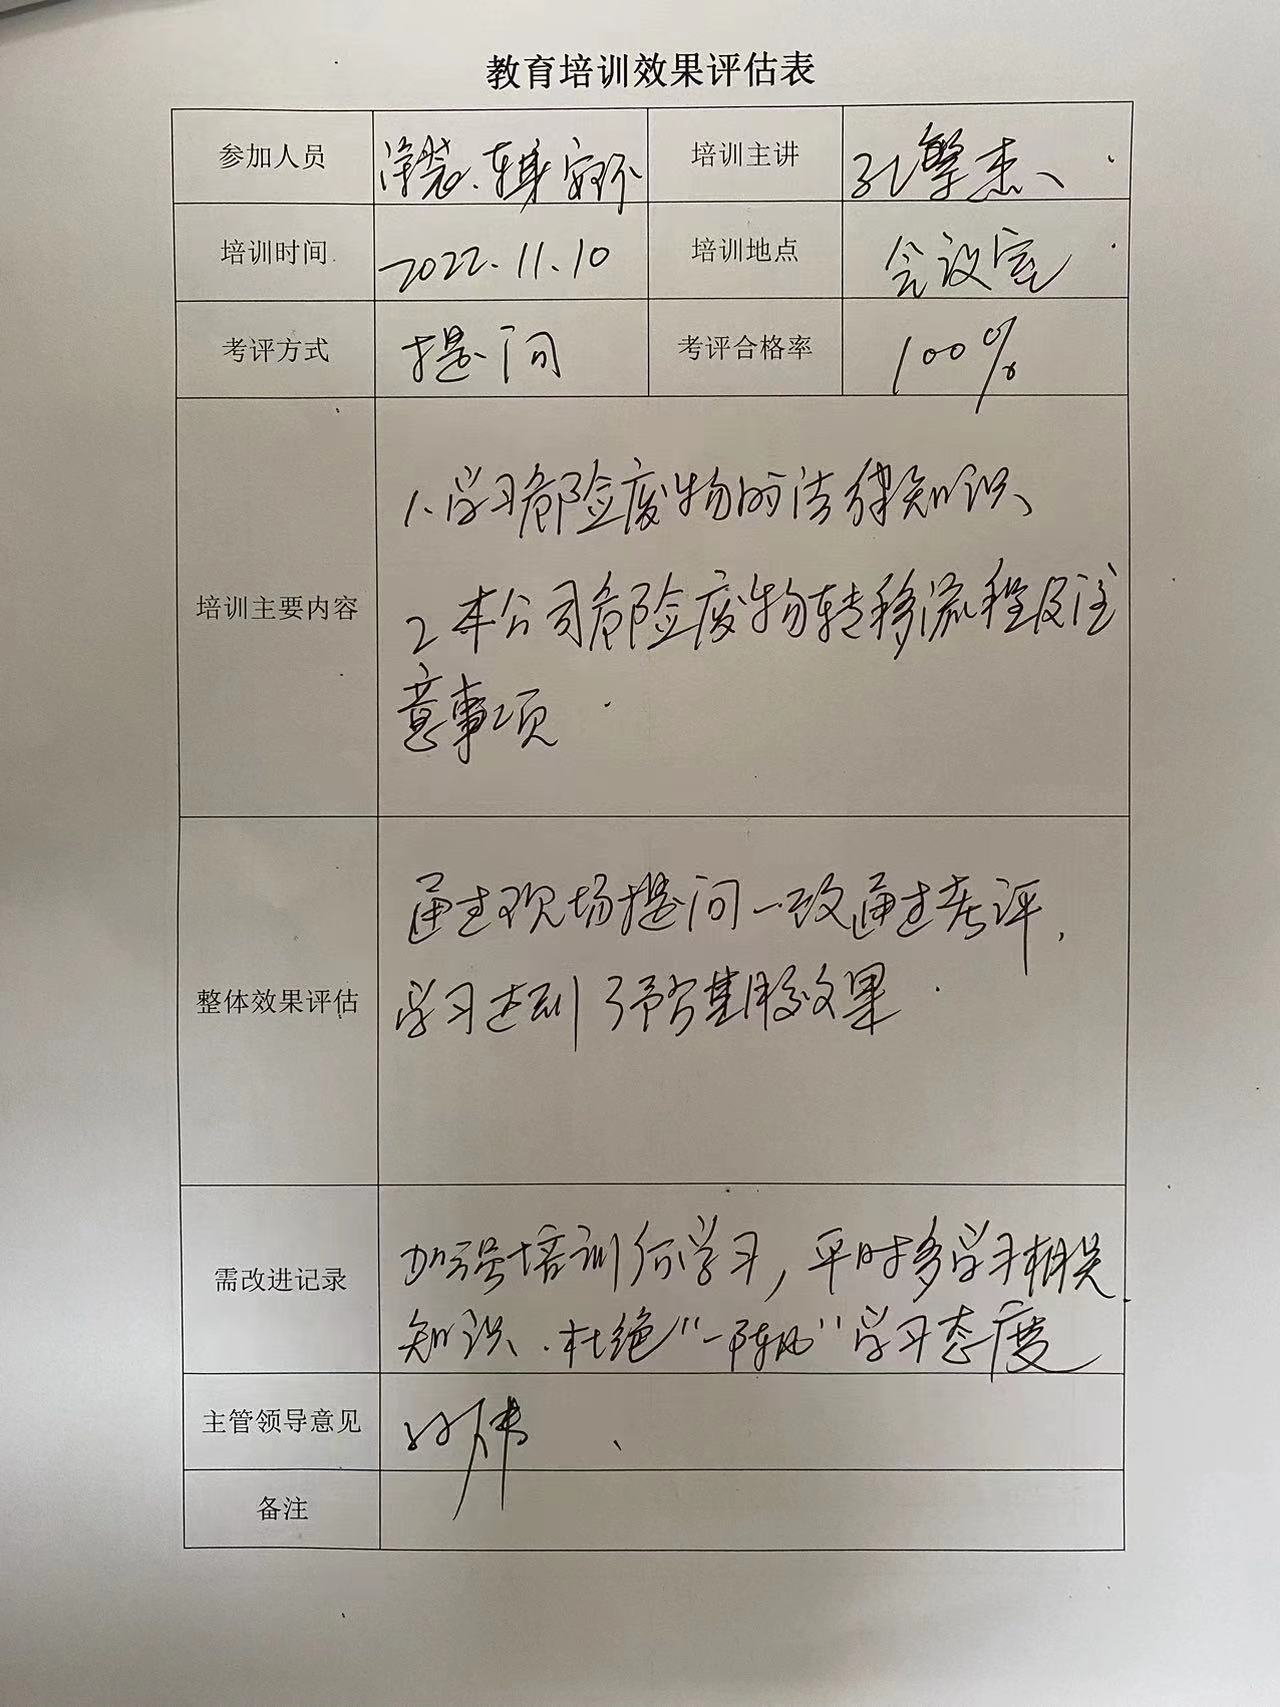 教育培训效果评估表
参加人员 涂装、车身 安环 培训主讲 孔繁杰、
培训时间 2022.11.10 培训地点 会议室
考评方式 提问 考评合格率 100%
培训主要内容
1、学习危险废物的法律知识、
2 本公司危险废物转移流程及注
意事项
整体效果评估
通过现场提问一致通过考评,
学习达到了预期效果
需改进记录
加强培训后学习,平时多学习相关
知识、杜绝“一阵风”学习态度
主管领导意见
备注